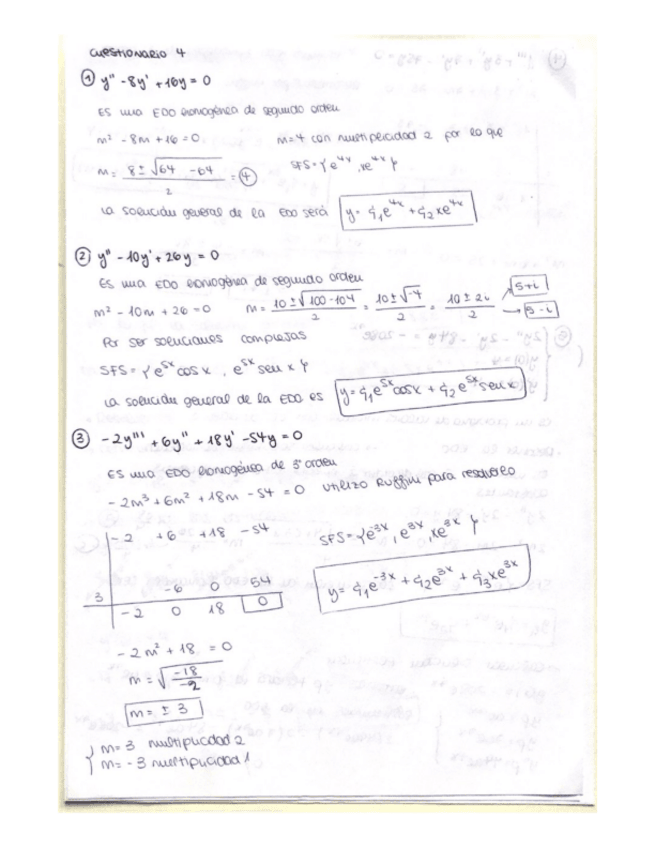 CUESTIONARIO 4
① y'' - 8y' + 16y = 0
ES una EDO homogénea de segundo orden
m² - 8m + 16 = 0    m=4 con multiplicidad 2 por lo que
m = (8 ± √64 - 64) / 2 = ④    SFS = {e^4x, xe^4x}
La solución general de la EDO será y = C₁e^4x + C₂xe^4x
② y'' - 10y' + 26y = 0
ES una EDO homogénea de segundo orden
m² - 10m + 26 = 0    m = (10 ± √100 - 104) / 2 = (10 ± √-4) / 2 = (10 ± 2i) / 2 → 5+i → 5-i
Por ser soluciones complejas
SFS = {e^5x cos x, e^5x sen x}
La solución general de la EDO es y = C₁e^5x cos x + C₂e^5x sen x
③ -2y''' + 6y'' + 18y' - 54y = 0
ES una EDO homogénea de 3º orden
-2m³ + 6m² + 18m - 54 = 0    utilizo Ruffini para resolverlo
-2  +6  +18  -54    SFS = {e^-3x, e^3x, xe^3x}
3  -6  0  54    y = C₁e^-3x + C₂e^3x + C₃xe^3x
-2  0  18  0
-2m² + 18 = 0
m = √(-18 / -2)
m = ± 3
m = 3 multiplicidad 2
m = -3 multiplicidad 1